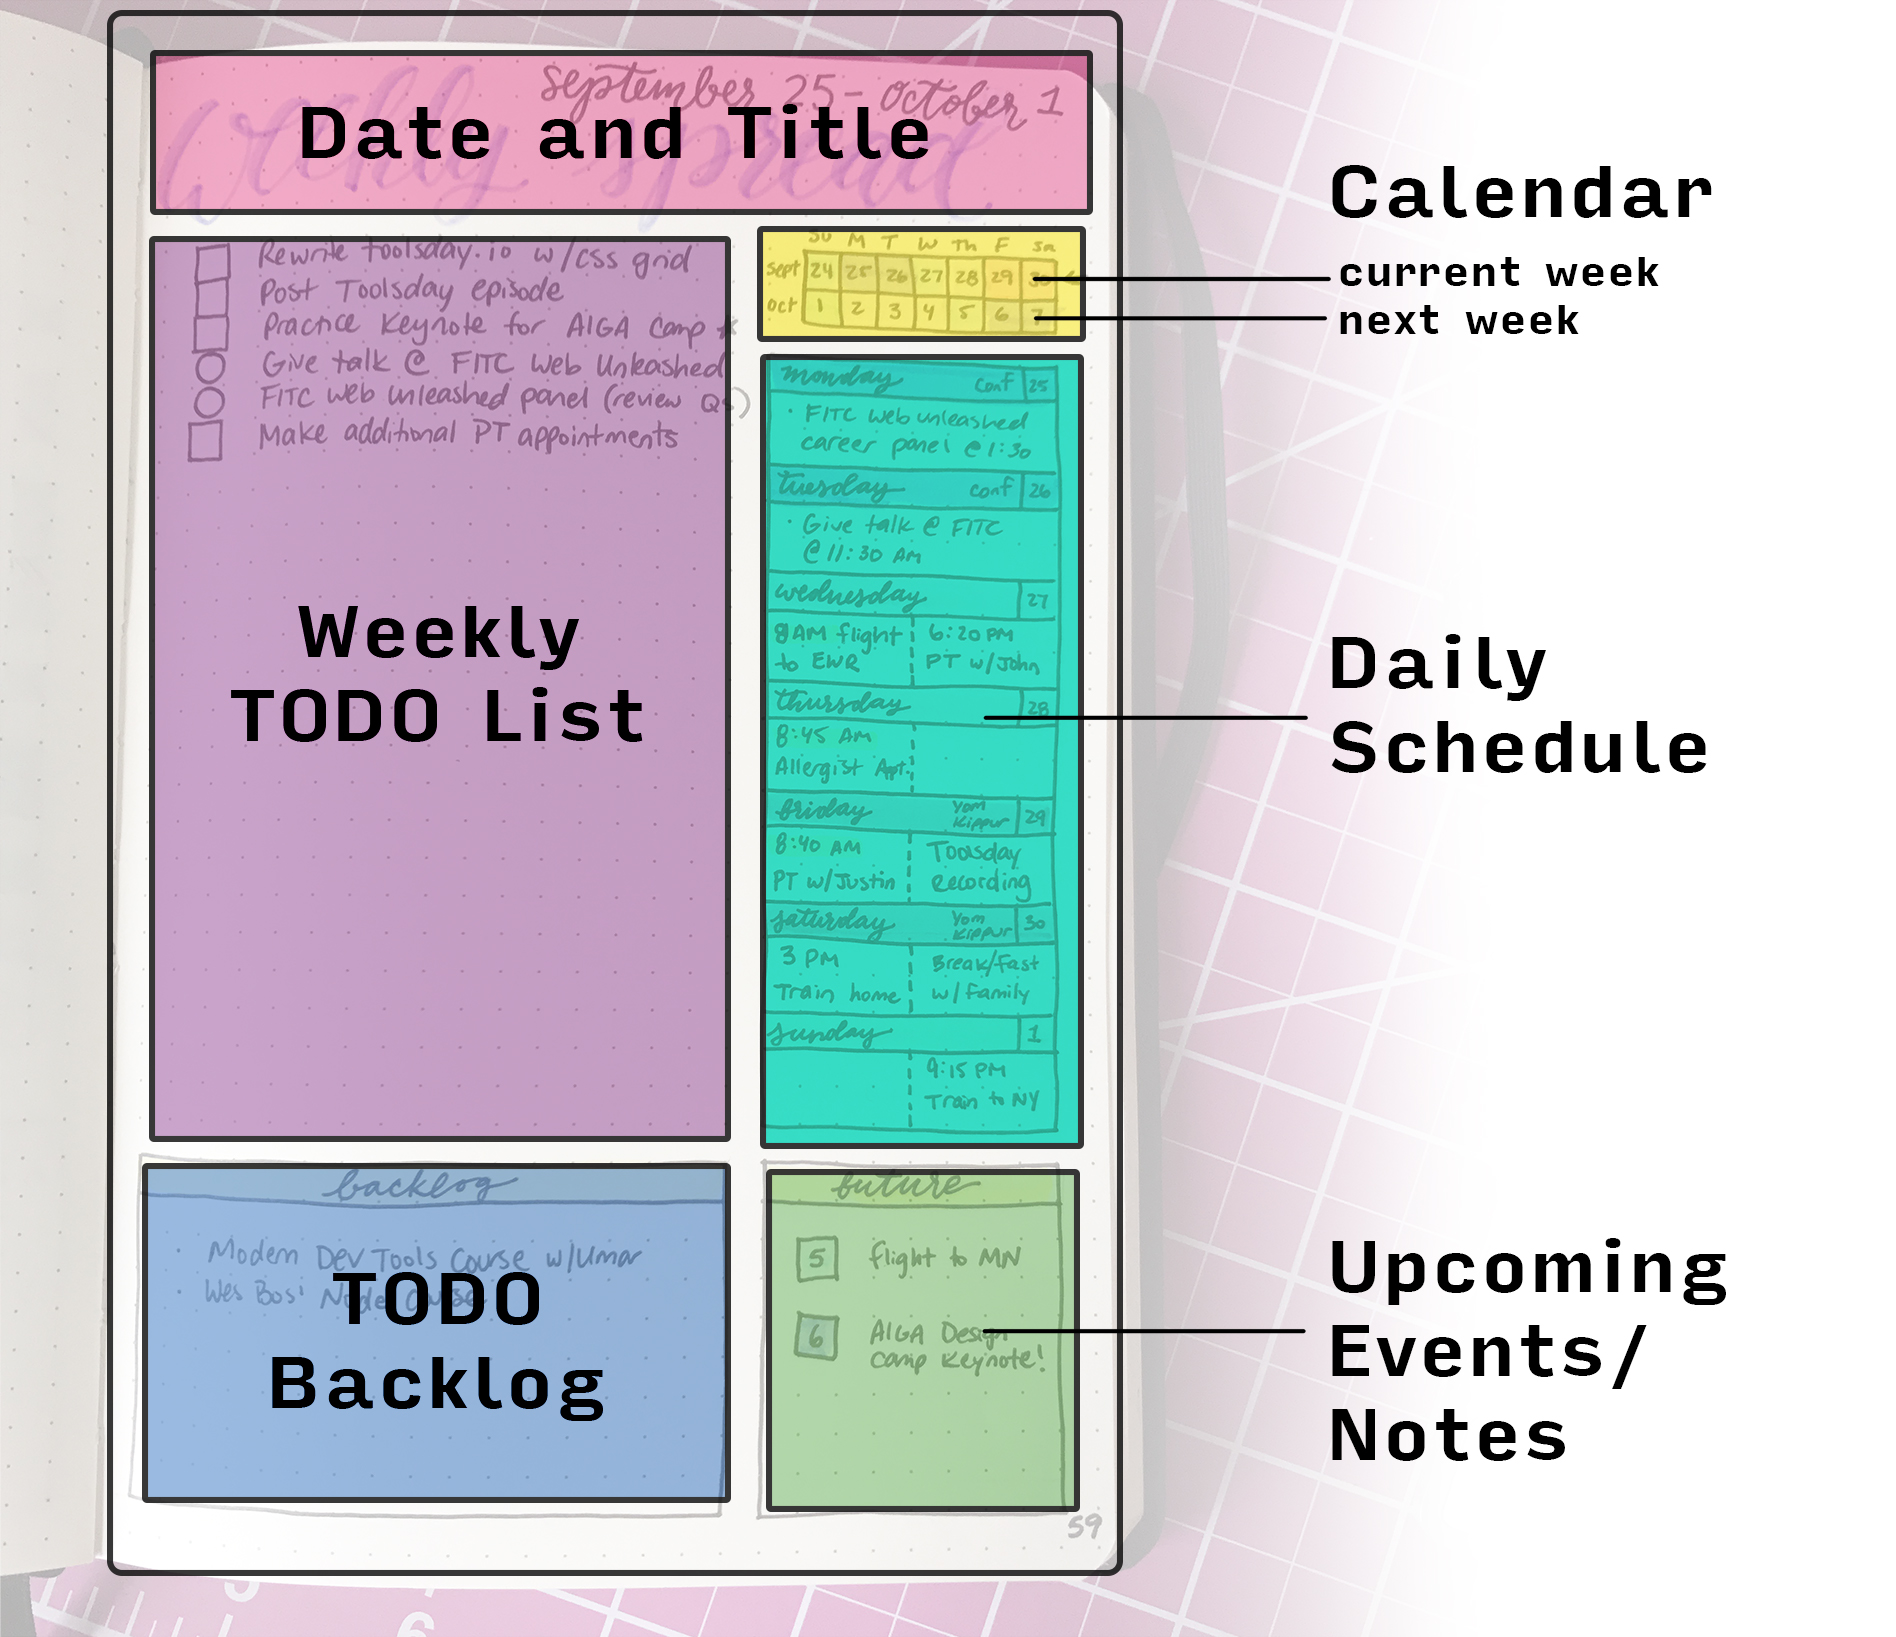 september 25 - october 1
Weekly spread
Date and Title
Rewrite toolsday.io w/css grid
Post Toolsday episode
Practice Keynote for AIGA Camp
Give talk @ FITC Web Unleashed
FITC Web Unleashed panel (review Qs)
Make additional PT appointments
Weekly
TODO List
Su M T W Th F Sa
Sept 24 25 26 27 28 29 30
Oct 1 2 3 4 5 6 7
Calendar
current week
next week
monday conf 25
· FITC Web Unleashed
career panel @ 1:30
tuesday conf 26
· Give talk @ FITC
@ 11:30 AM
wednesday 27
8AM flight
to EWR
6:20 PM
PT w/John
thursday 28
8:45 AM
Allergist Appt.
friday Yom Kippur 29
8:40 AM
PT w/Justin
Toolsday
Recording
saturday Yom Kippur 30
3 PM
Train home
Break/fast
w/family
sunday 1
9:15 PM
Train to NY
Daily
Schedule
backlog
· Modern Dev Tools Course w/Umar
· Wes Bos' Node Course
TODO
Backlog
future
5 flight to MN
6 AIGA Design
Camp Keynote!
Upcoming
Events/
Notes
59
6